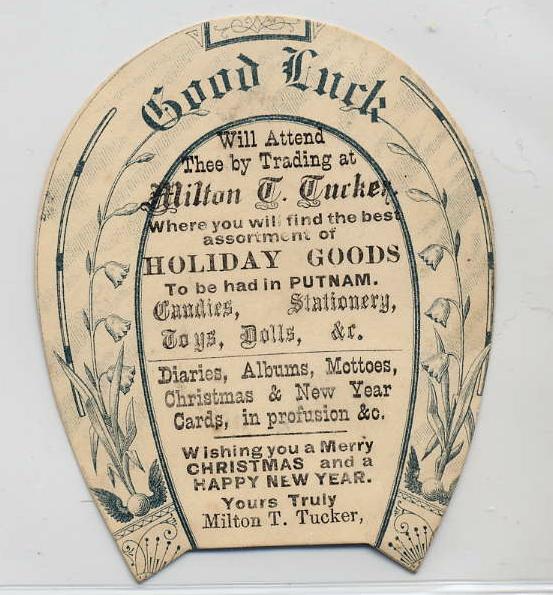 Good Luck
Will Attend
Thee by Trading at
Milton T. Tucker,
Where you will find the best
assortment of
HOLIDAY GOODS
To be had in PUTNAM.
Candies, Stationery,
Toys, Dolls, &c.
Diaries, Albums, Mottoes,
Christmas & New Year
Cards, in profusion &c.
Wishing you a Merry
CHRISTMAS and a
HAPPY NEW YEAR.
Yours Truly
Milton T. Tucker,